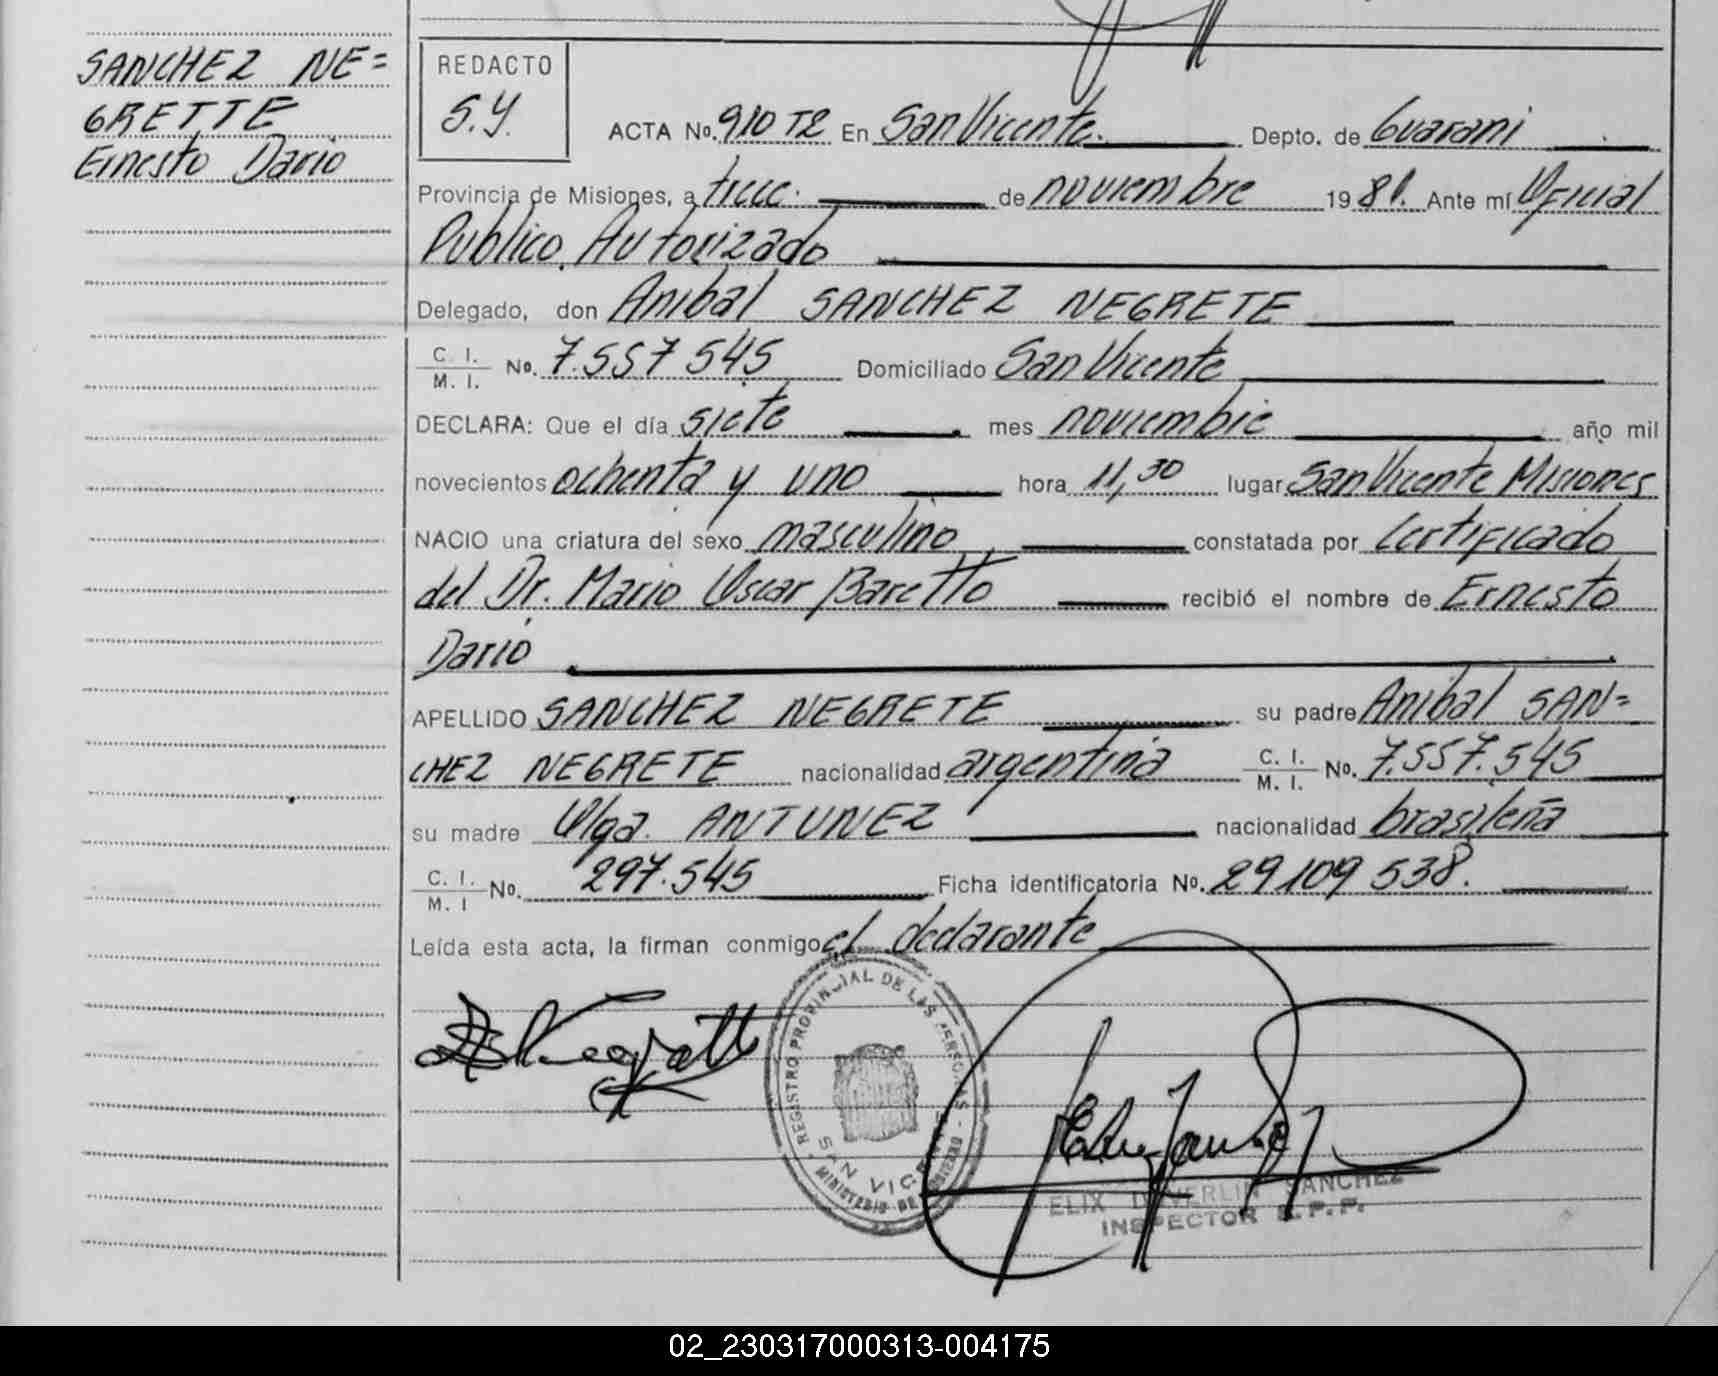 SANCHEZ NE=
GRETTE
Ernesto Dario
REDACTO
S.Y.
ACTA No. 910 T2 En San Vicente. Depto. de Guarani
Provincia de Misiones, a trece. de noviembre 1981. Ante mí Oficial
Publico Autorizado
Delegado, don Anibal SANCHEZ NEGRETE
C. I. / M. I. No. 7.557 545 Domiciliado San Vicente
DECLARA: Que el día siete mes noviembre año mil
novecientos ochenta y uno hora 11,30 lugar San Vicente Misiones
NACIO una criatura del sexo masculino constatada por Certificado
del Dr. Mario Oscar Baretto recibió el nombre de Ernesto
Dario
APELLIDO SANCHEZ NEGRETE su padre Anibal SAN=
CHEZ NEGRETE nacionalidad argentina C. I. / M. I. No. 7.557.545
su madre Olga ANTUNEZ nacionalidad brasileña
C. I. / M. I No. 297.545 Ficha identificatoria No. 29109 538.
Leída esta acta, la firman conmigo el declarante
REGISTRO PROVINCIAL DE LAS PERSONAS
SAN VICENTE
MINISTERIO DE GOBIERNO
ELIX SANCHEZ
INSPECTOR R.P.P.
02_230317000313-004175